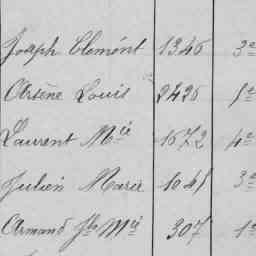 Joseph Clemént 1346 3e
Arsène Louis 2426 5e
Laurent Mie 1672 4e
Julien Marie 1041 3e
Armand Jh Mie 307 1e